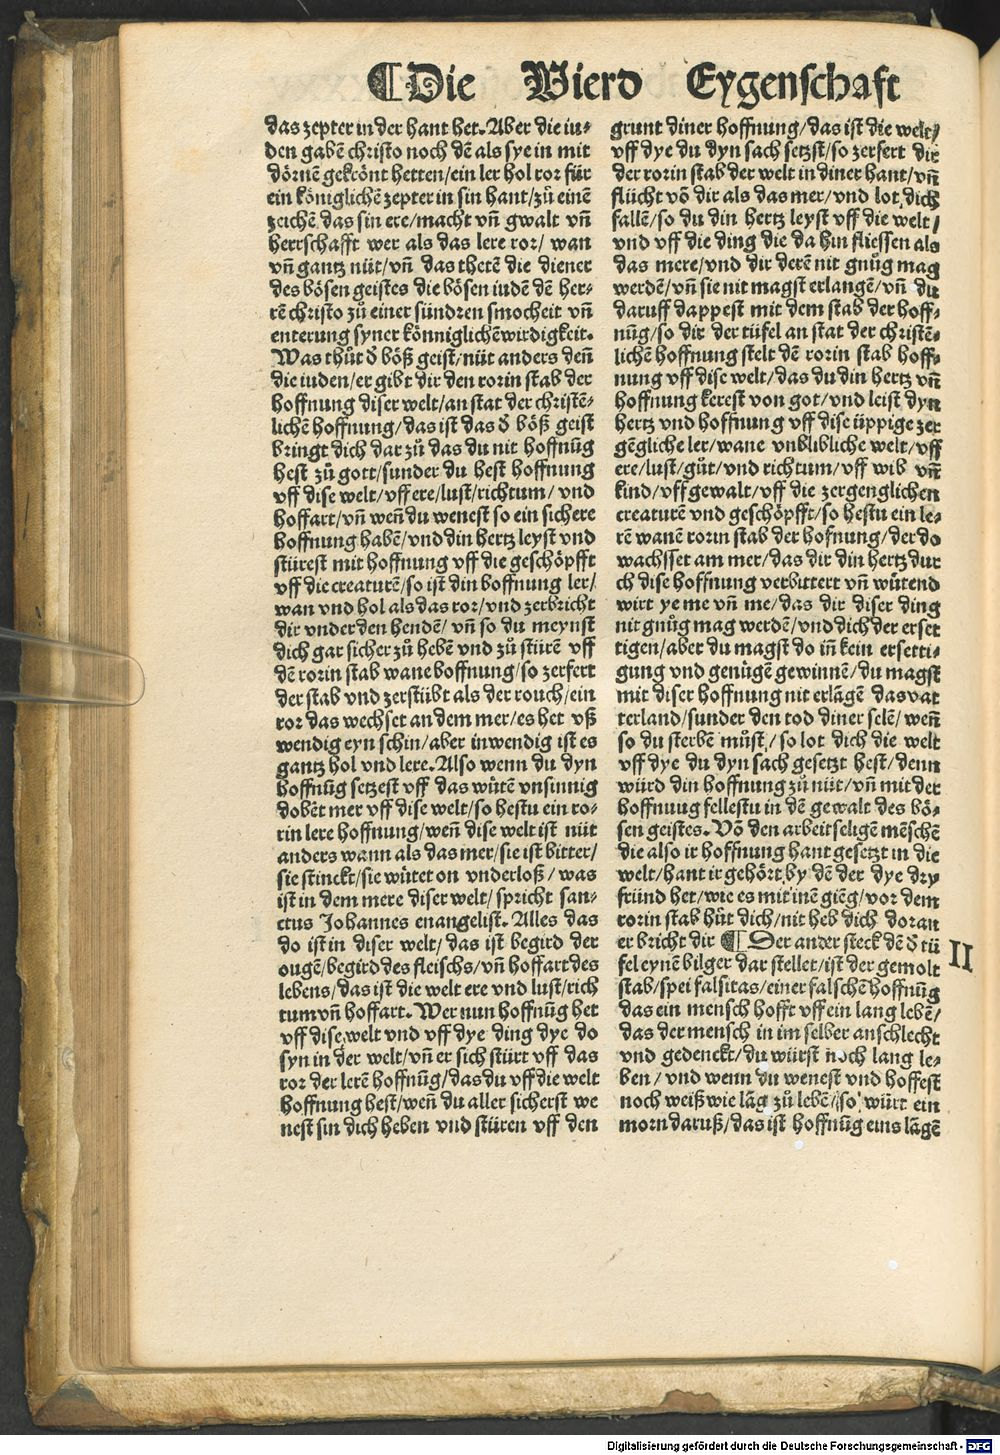 ¶Die Vierd Eygenschaft
das zepter in der hant het. Aber die iu⸗
den gabē christo noch dē als sye in mit
dörnē gekrönt hetten/ein ler hol ror für
ein königlichē zepter in sin hant/zů einē
zeichē das sin ere/macht vñ gwalt vñ
herrschafft wer als das lere ror/ wan
vñ gantz nüt/vñ das thetē die diener
des bösen geistes die bösen iudē dē her⸗
rē christo zů einer sundren smocheit vñ
enterung syner könniglichēwirdigkeit.
Was thůt ð böß geist/nüt anders deñ
die iuden/er gibt dir den rorin stab der
hoffnung diser welt/an stat der christē⸗
lichē hoffnung/das ist das ð böß geist
bringt dich dar zů das du nit hoffnūg
hest zů gott/sunder du hest hoffnung
vff dise welt/vff ere/lust/richtum/ vnd
hoffart/vñ weñ du wenest so ein sichere
hoffnung habē/vnd din hertz leyst vnd
stürest mit hoffnung vff die geschöpfft
vff die creaturē/so ist din hoffnung ler/
wan vnd hol als das ror/vnd zerbricht
dir vnder den hendē/ vñ so du meynst
dich gar sicher zů hebē vnd zů stürē vff
dē rorin stab wane hoffnung/so zerfert
der stab vnd zerstübt als der rouch/ein
ror das wechset an dem mer/es het vß
wendig eyn schin/aber inwendig ist es
gantz hol vnd lere. Also wenn du dyn
hoffnūg setzest vff das wütē vnsinnig
dobēt mer vff dise welt/so hestu ein ro⸗
rin lere hoffnung/weñ dise welt ist nüt
anders wann als das mer/sie ist bitter/
sie stinckt/sie wütet on vnderloß/ was
ist in dem mere diser welt/ spricht san⸗
ctus Johannes euangelist. Alles das
do ist in diser welt/ das ist begird der
ougē/begird des fleischs/vñ hoffart des
lebens/das ist die welt ere vnd lust/rich
tum vñ hoffart. Wer nun hoffnūg het
vff dise welt vnd vff dye ding dye do
syn in der welt/vñ er sich stürt vff das
ror der lerē hoffnūg/das du vff die welt
hoffnung hest/weñ du aller sicherst we
nest sin dich heben vnd stüren vff den
grunt diner hoffnung/das ist die welt/
vff dye du dyn sach setzst/so zerfert dir
der rorin stab der welt in diner hant/vñ
flücht vō dir als das mer/vnd lot dich
fallē/so du din hertz leyst vff die welt/
vnd vff die ding die da hin fliessen als
das mere/vnd dir derē nit gnůg mag
werdē/vñ sie nit magst erlangē/vñ du
daruff dappest mit dem stab der hoff⸗
nūg/so dir der tüfel an stat der christē⸗
lichē hoffnung stelt dē rorin stab hoff⸗
nung vff dise welt/das du din hertz vñ
hoffnung kerest von got/vnd leist dyn
hertz vnd hoffnung vff dise üppige zer
gēgliche ler/wane vnblibliche welt/vff
ere/lust/gůt/vnd richtum/vff wib vñ
kind/vff gewalt/vff die zergenglichen
creaturē vnd geschöpfft/so hestu ein le⸗
rē wanē rorin stab der hofnung/der do
wachsset am mer/das dir din hertz dur
ch dise hoffnung verbittert vñ wütend
wirt ye me vñ me/das dir diser ding
nit gnůg mag werdē/vnd dich der erset
tigen/aber du magst do iñ kein ersetti⸗
gung vnd genügē gewinnē/du magst
mit diser hoffnung nit erlāgē das vat
terland/sunder den tod diner selē/ weñ
so du sterbē můst/ so lot dich die welt
vff dye du dyn sach gesetzt hest/denn
würd din hoffnung zů nüt/vñ mit der
hoffnuug fellestu in dē gewalt des bö⸗
sen geistes. Vō den arbeitseligē mēschē
die also ir hoffnung hant gesetzt in die
welt/hant ir gehört by dē der dye dry
fründ het/wie es mit inē gieg/vor dem
rorin stab hüt dich/nit heb dich doran
er bricht dir ¶ Der ander steck dē ð tü
fel eynē bilger dar stellet/ist der gemolt
stab/spei falsitas/einer falschē hoffnūg
das ein mensch hofft vff ein lang lebē/
das der mensch in im selber anschlecht
vnd gedenckt/du würst noch lang le⸗
ben/ vnd wenn du wenest vnd hoffest
noch weiß wie lāg zů lebē/so würt ein
morn daruß/das ist hoffnūg eins lāgē
II
Digitalisierung gefördert durch die Deutsche Forschungsgemeinschaft - DFG